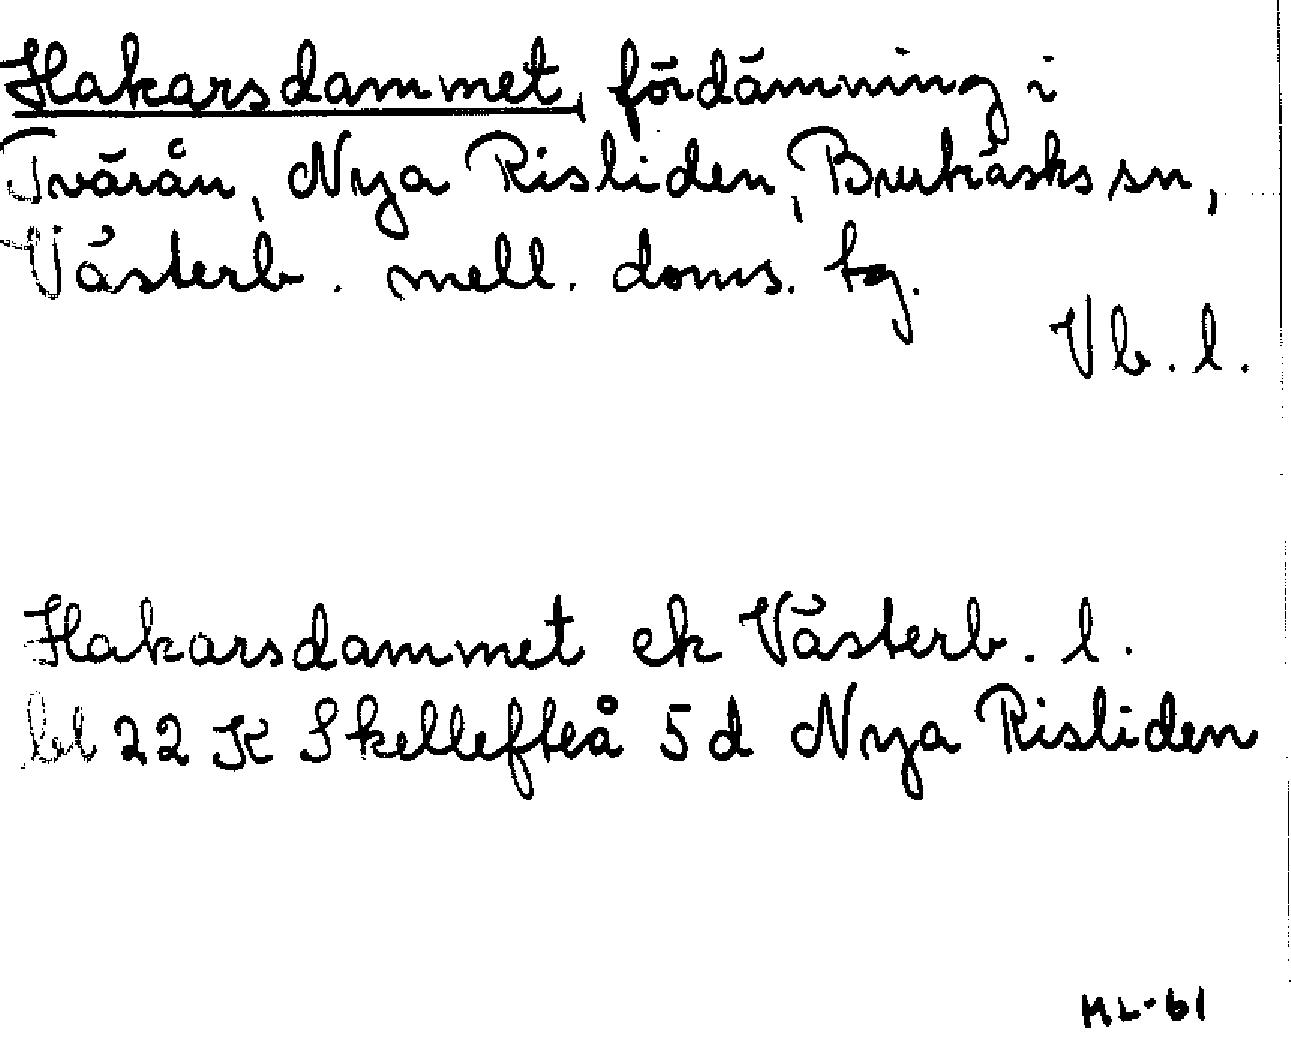 Hakarsdammet, fördämning i
Tvärån, Nya Risliden, Burträsks sn,
Västerb. mell. doms. tg.
Vb. l.
Hakarsdammet ek Västerb. l.
bl 22 K Skellefteå 5 d Nya Risliden
ML-61